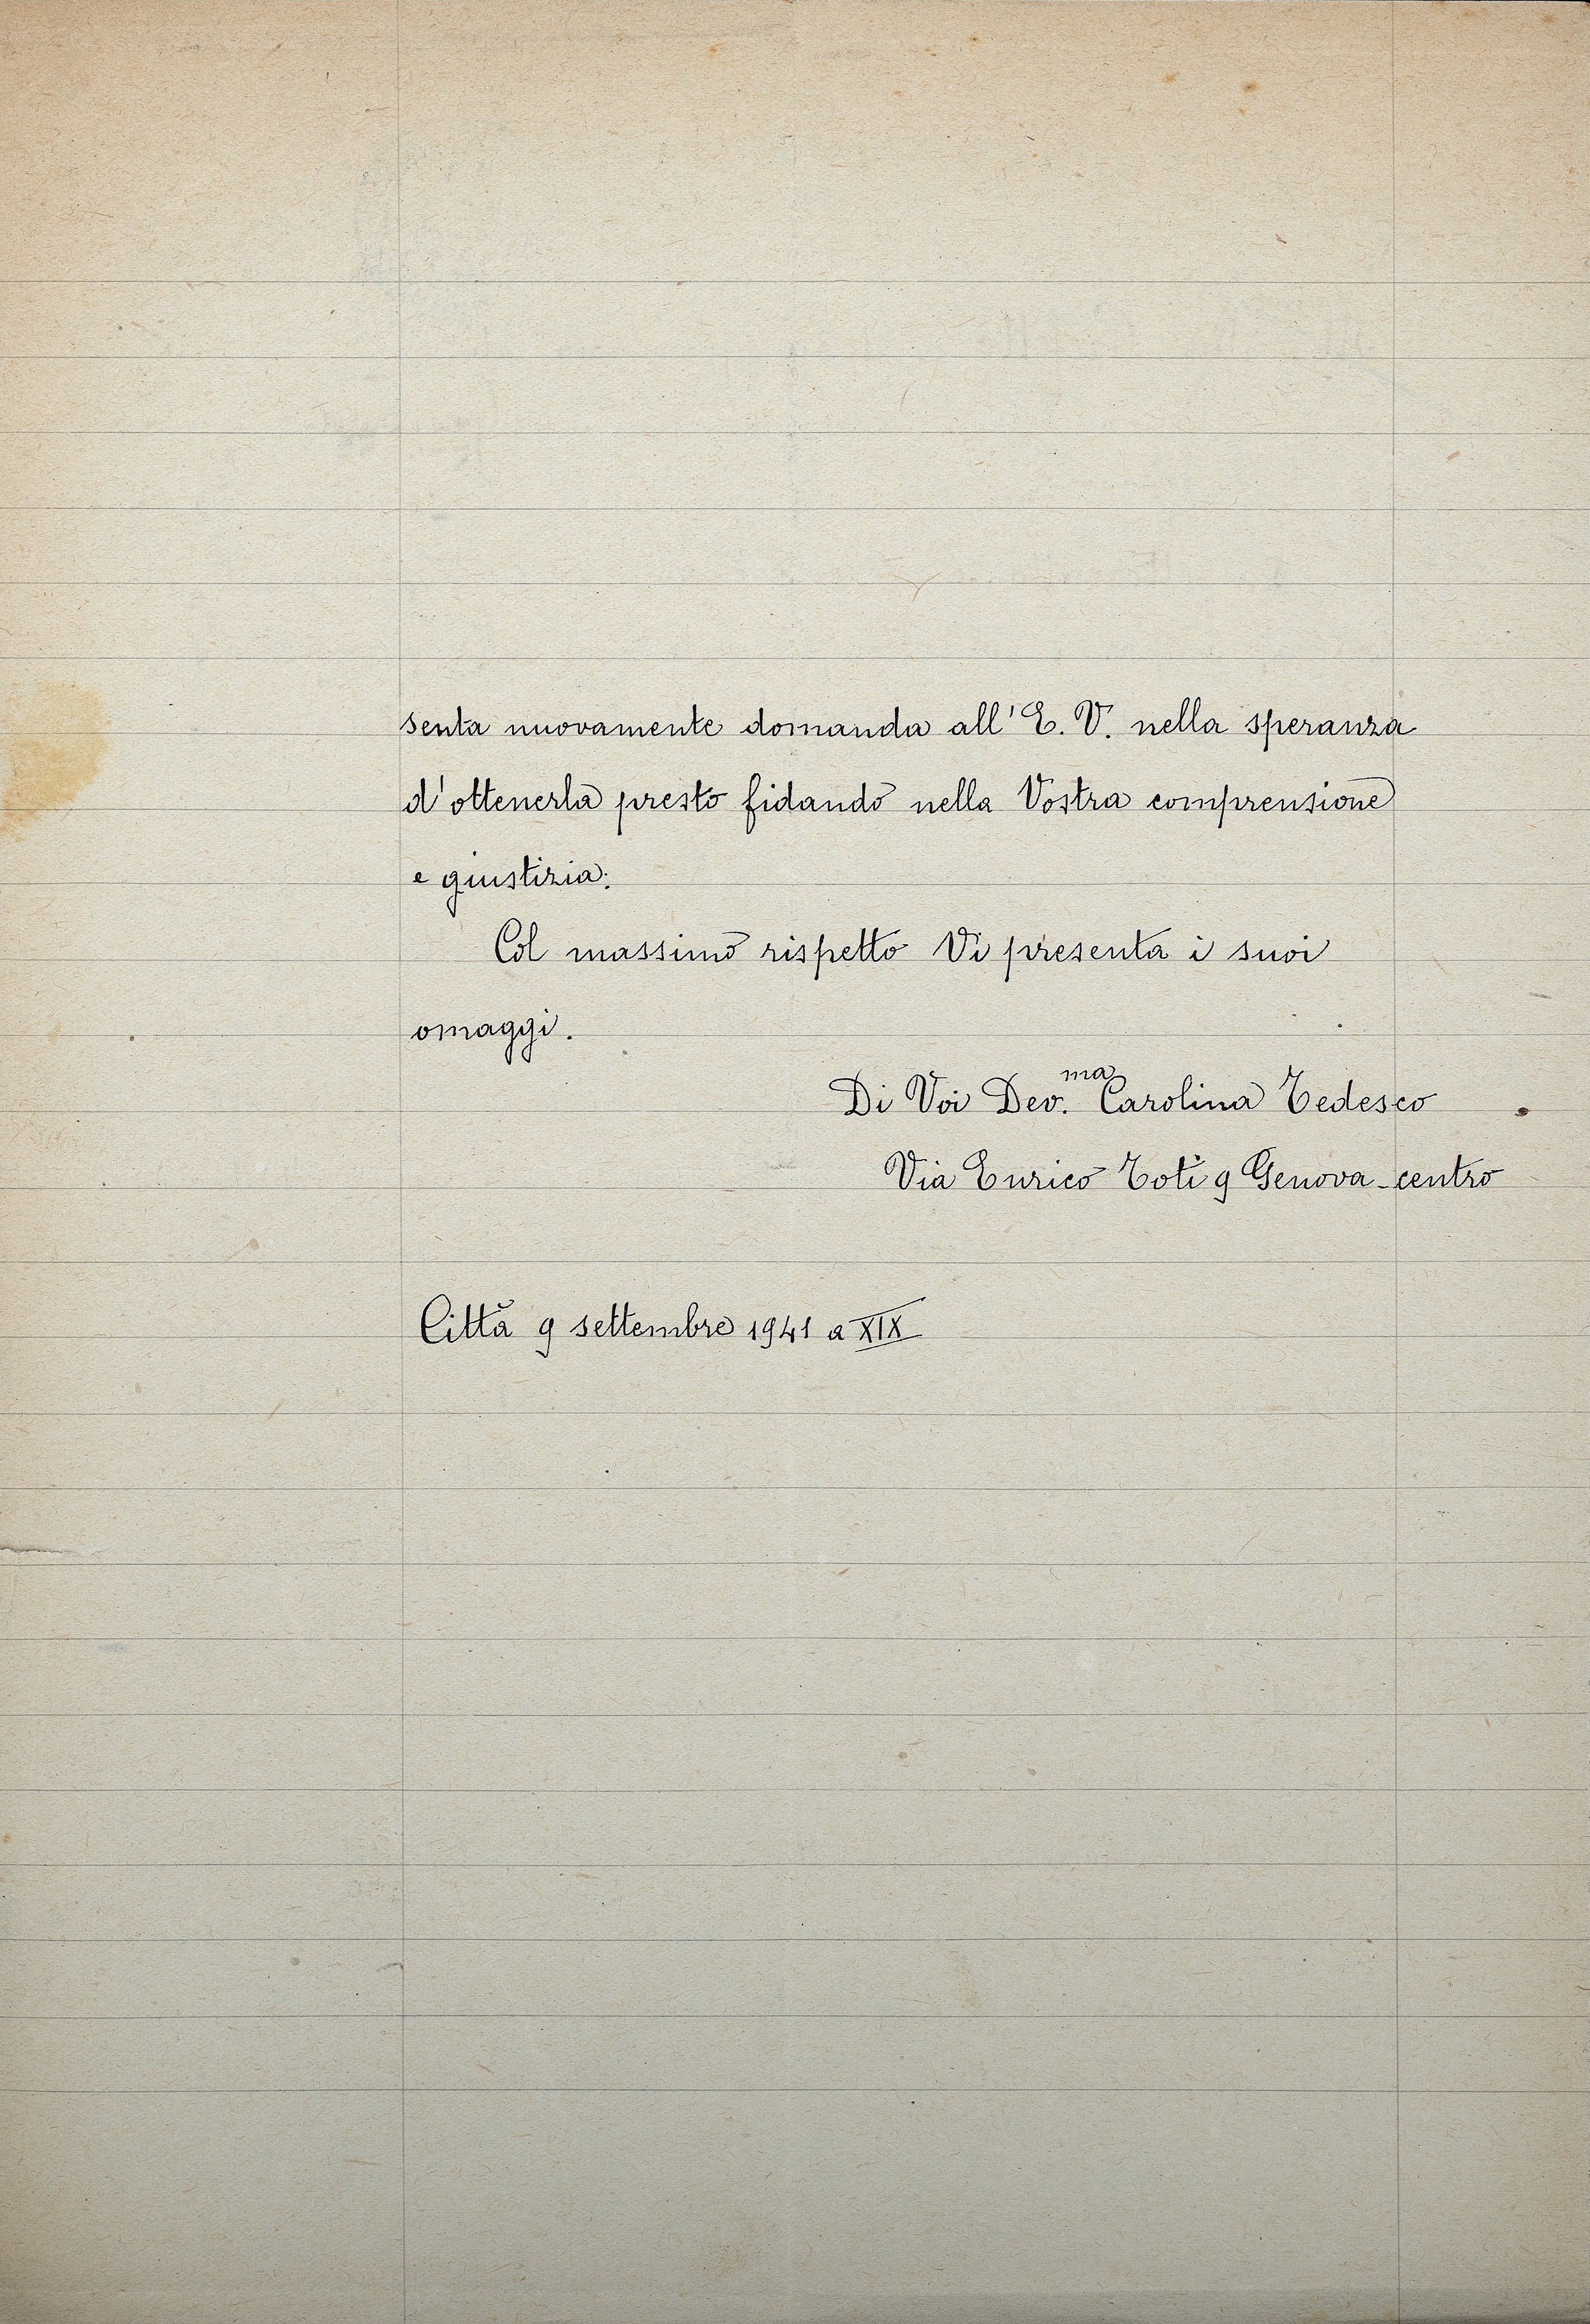 senta nuovamente domanda all' E. V. nella speranza
d'ottenerla presto fidando nella Vostra comprensione
e giustizia.
Col massimo rispetto Vi presenta i suoi
omaggi.
Di Voi Dev.ma Carolina Tedesco
Via Enrico Toti 9 Genova-centro
Città 9 settembre 1941 a XIX